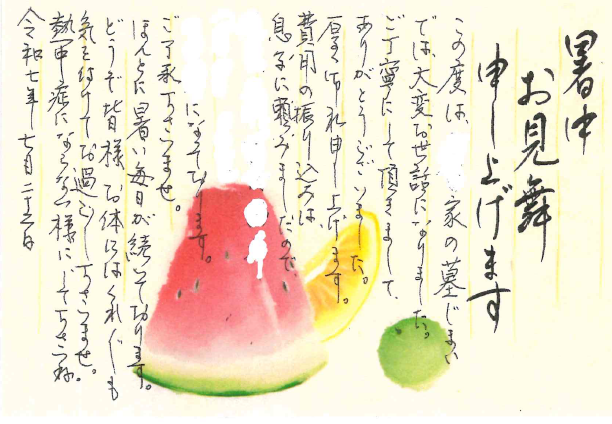 暑中
お見舞
申し上げます
この度は、家の墓じまい
では、大変お世話になりました。
ご丁寧にして頂きまして、
ありがとうございました。
厚く御礼申し上げます。
費用の振り込みは
息子に頼みましたので
になっております。
ご了承下さいませ。
ほんとに暑い毎日が続いて切ります。
どうぞ皆様お体にはくれぐれも
気を付けてお過ごし下さいませ。
熱中症にならない様にして下さいね。
令和七年七月二十五日